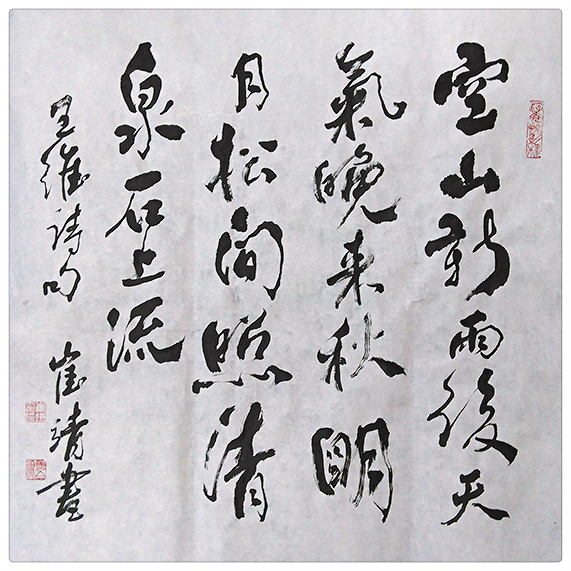 空山新雨後天
氣晚来秋明
月松间照清
泉石上流
王維詩句 崔靖書